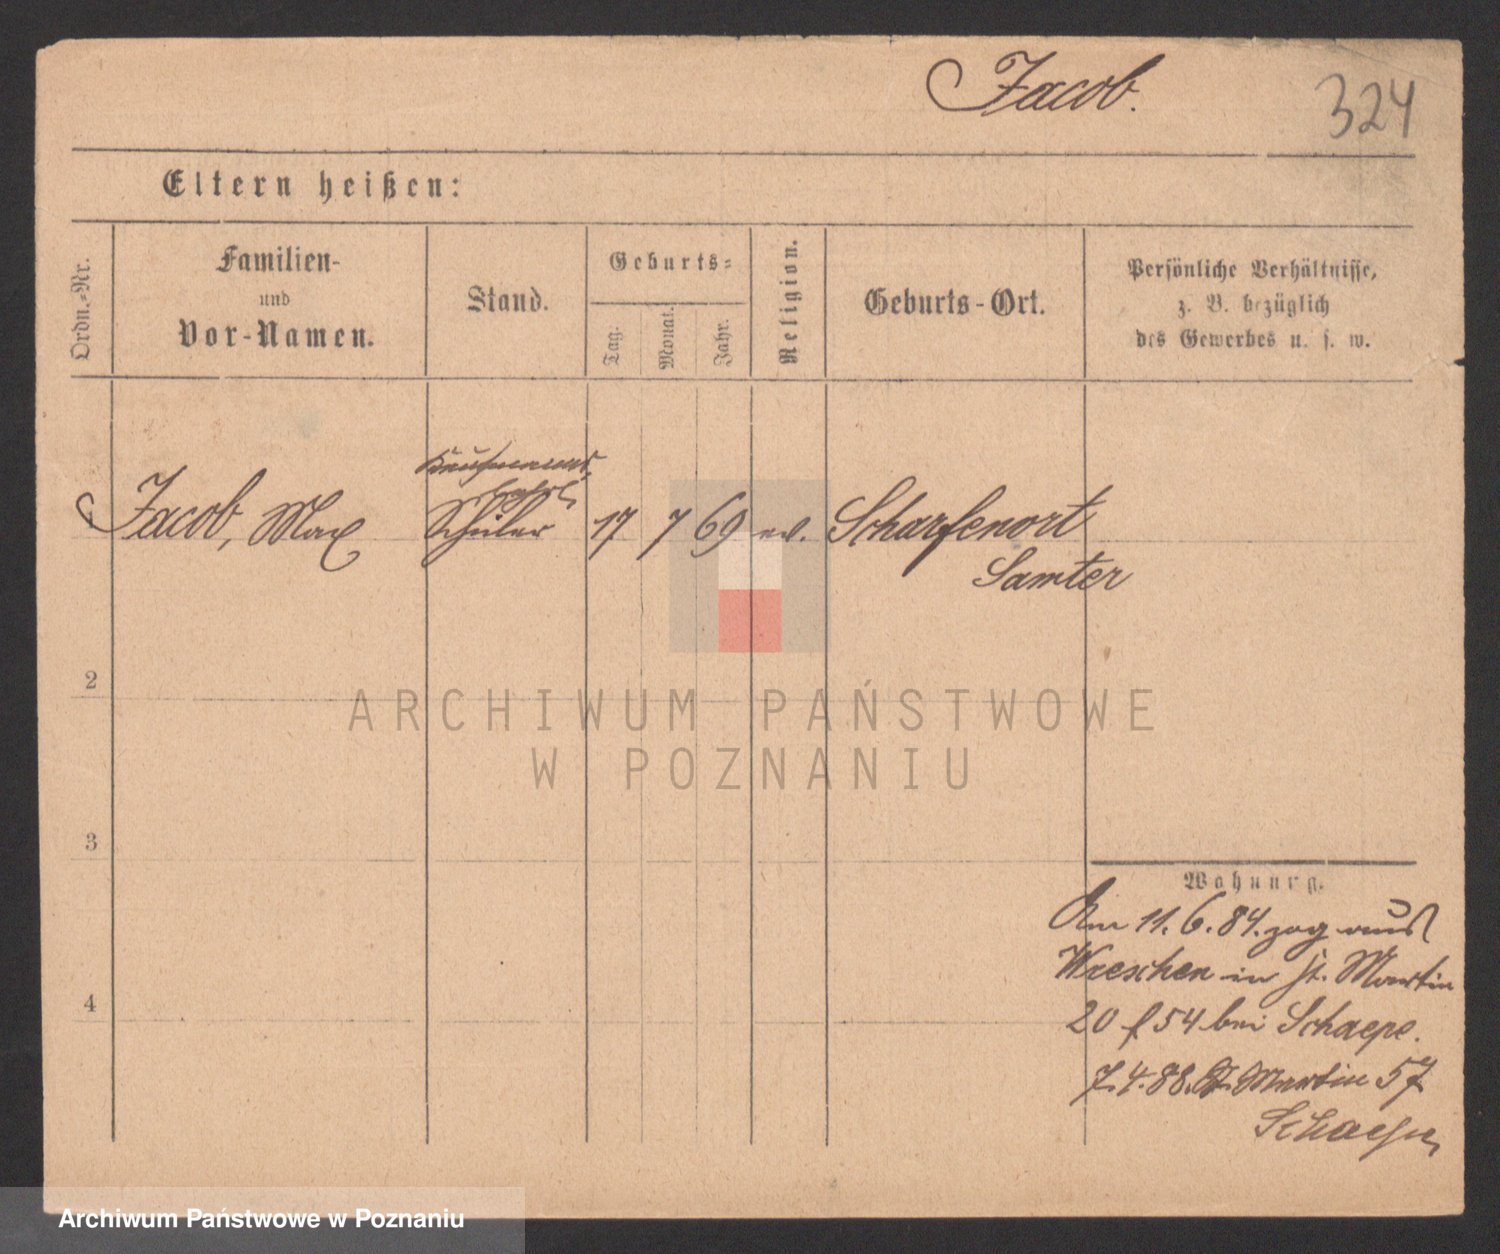 Jacob.
324
Eltern heißen:
Ordn.=Nr.
Familien-
und
Vor-Namen.
Stand.
Geburts=
Tag.
Monat.
Jahr.
Religion.
Geburts-Ort.
Persönliche Verhältnisse,
z. B. bezüglich
des Gewerbes u. s. w.
Kaufmanns
Jacob, Max Schüler 17 7 69 ev. Scharfenort
Samter
2
ARCHIWUM PAŃSTWOWE
W POZNANIU
3
Wohnung.
Am 11. 6. 84. zog aus
Wreschen in St. Martin
20 f 54 bei Schaepe.
4
7. 4. 88. St. Martin 57
Schaepe
Archiwum Państwowe w Poznaniu